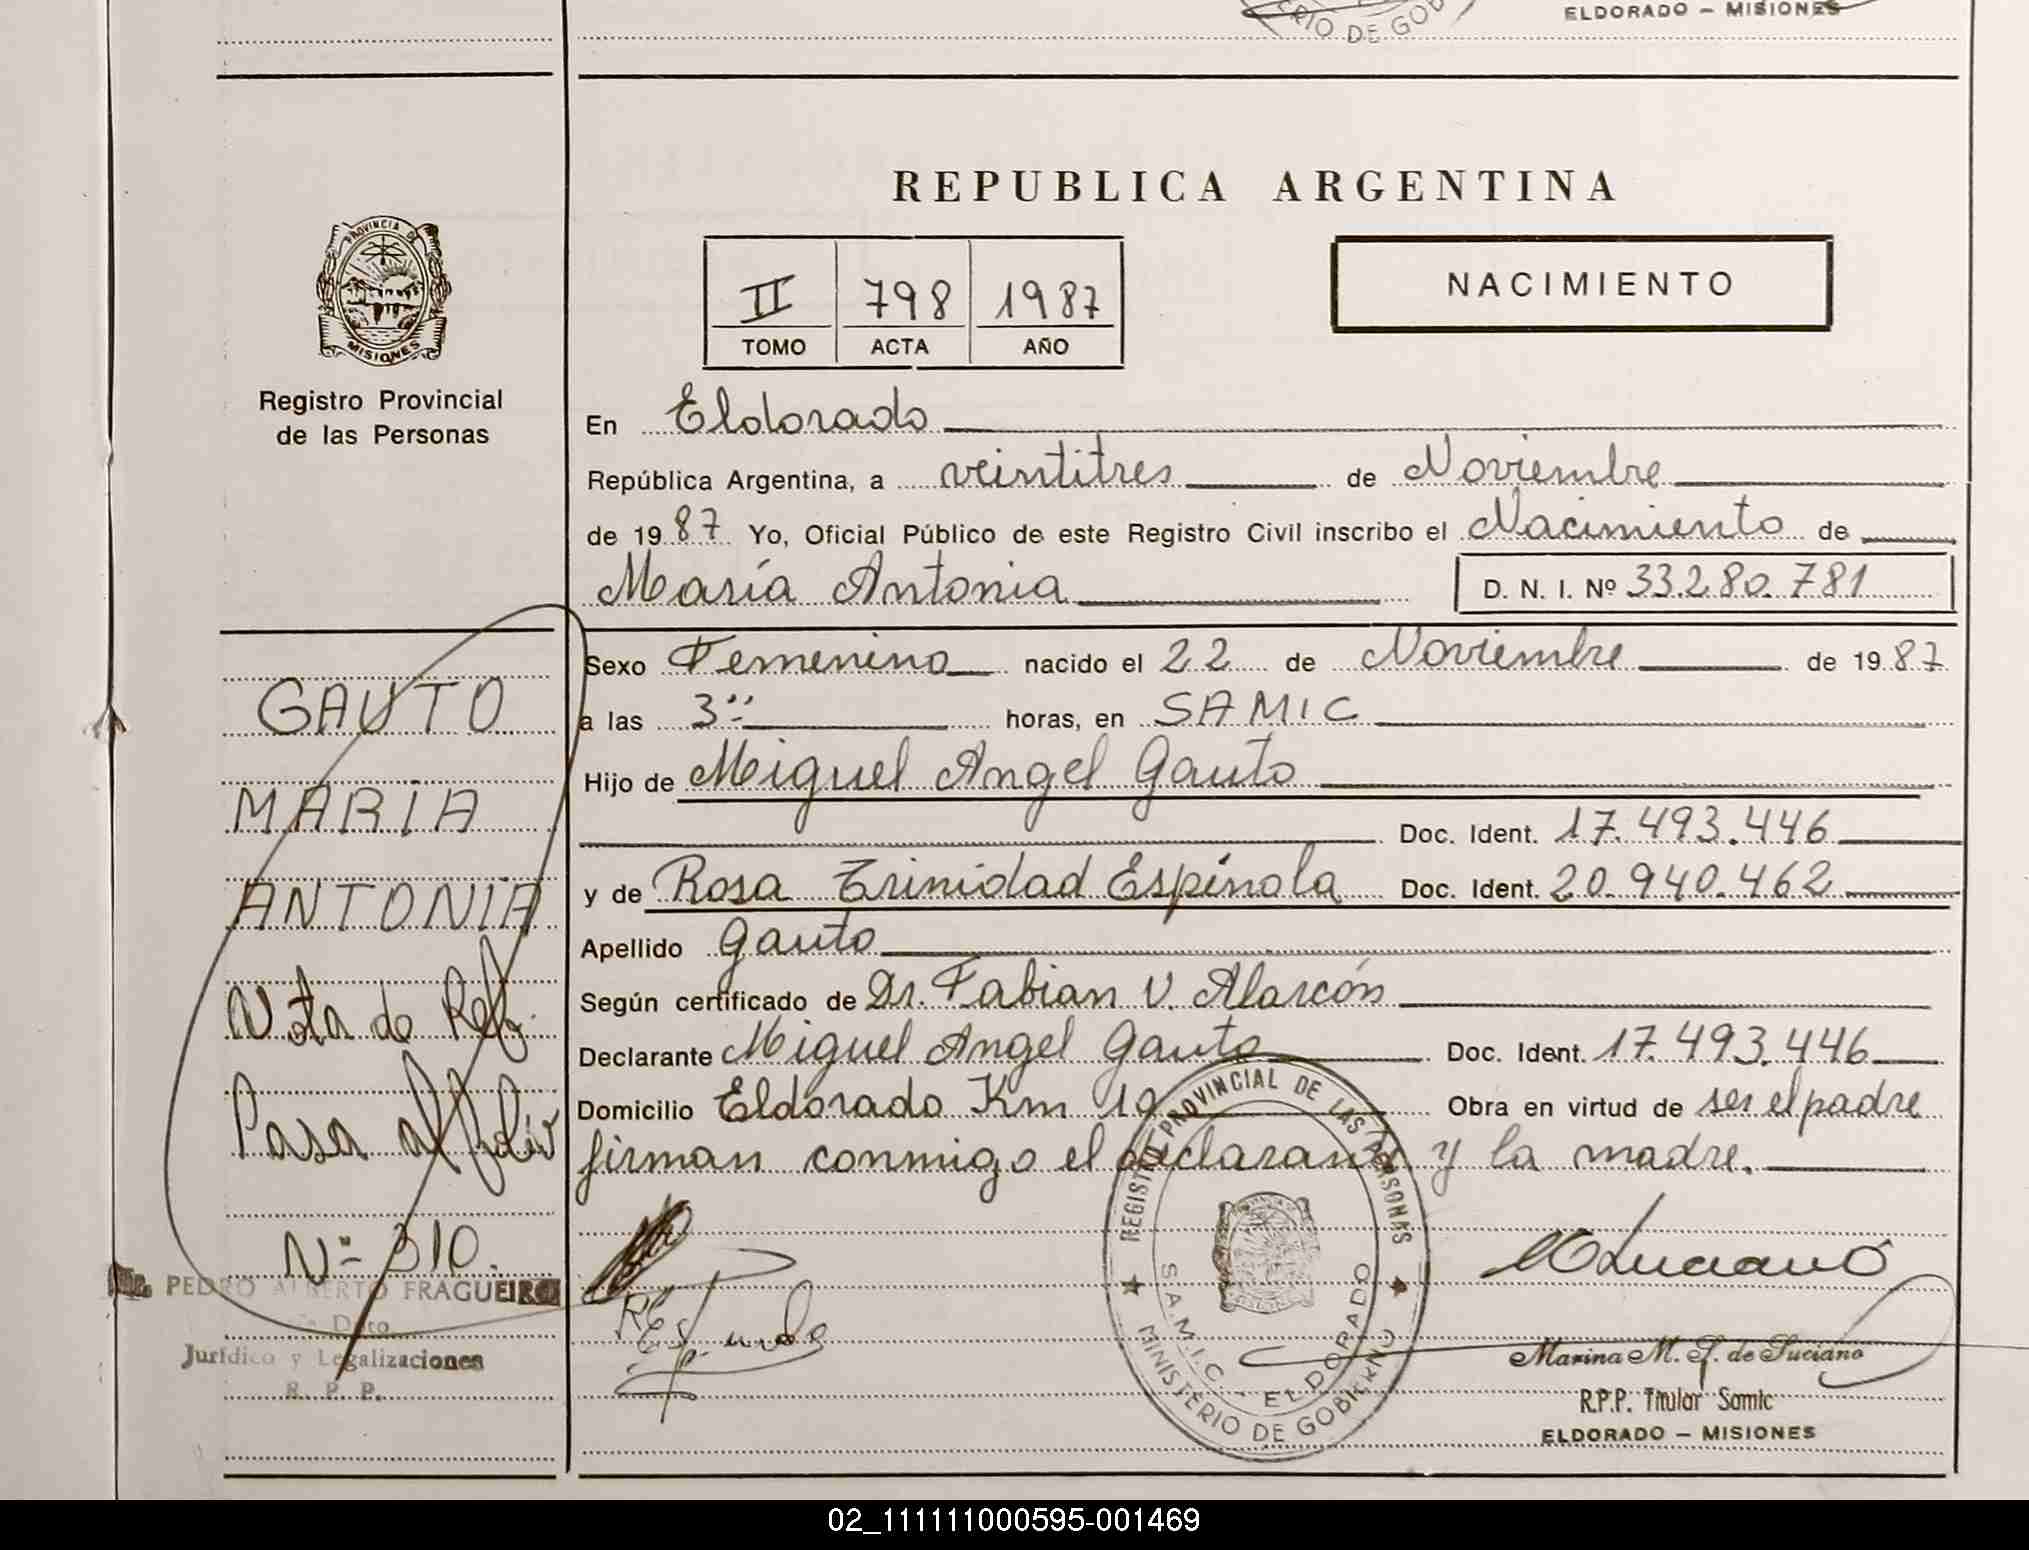 ERIO DE GOB
ELDORADO – MISIONES
REPUBLICA ARGENTINA
PROVINCIA DE
MISIONES
Registro Provincial
de las Personas
II 798 1987
TOMO ACTA AÑO
NACIMIENTO
En Eldorado
República Argentina, a veintitres de Noviembre
de 19 87 Yo, Oficial Público de este Registro Civil inscribo el Nacimiento de
María Antonia D. N. I. Nº 33.280.781
GAUTO
MARIA
ANTONIA
Nota de Ref.
Pasa al folio
Nº 310.
PEDRO ALBERTO FRAGUEIRO
Dpto.
Jurídico y Legalizaciones
R. P. P.
Sexo Femenino nacido el 22 de Noviembre de 19 87
a las 3 horas, en SAMIC
Hijo de Miguel Angel Gauto
Doc. Ident. 17.493.446
y de Rosa Trinidad Espínola Doc. Ident. 20.940.462
Apellido Gauto
Según certificado de Dr. Fabian V. Alarcón
Declarante Miguel Angel Gauto Doc. Ident. 17.493.446
Domicilio Eldorado Km 19 Obra en virtud de ser el padre
firman conmigo el declarante y la madre.
REGISTRO PROVINCIAL DE LAS PERSONAS
S.A.M.I.C. - ELDORADO
MINISTERIO DE GOBIERNO
Marina M. S. de Luciano
R.P.P. Titular Samic
ELDORADO – MISIONES
02_111111000595-001469